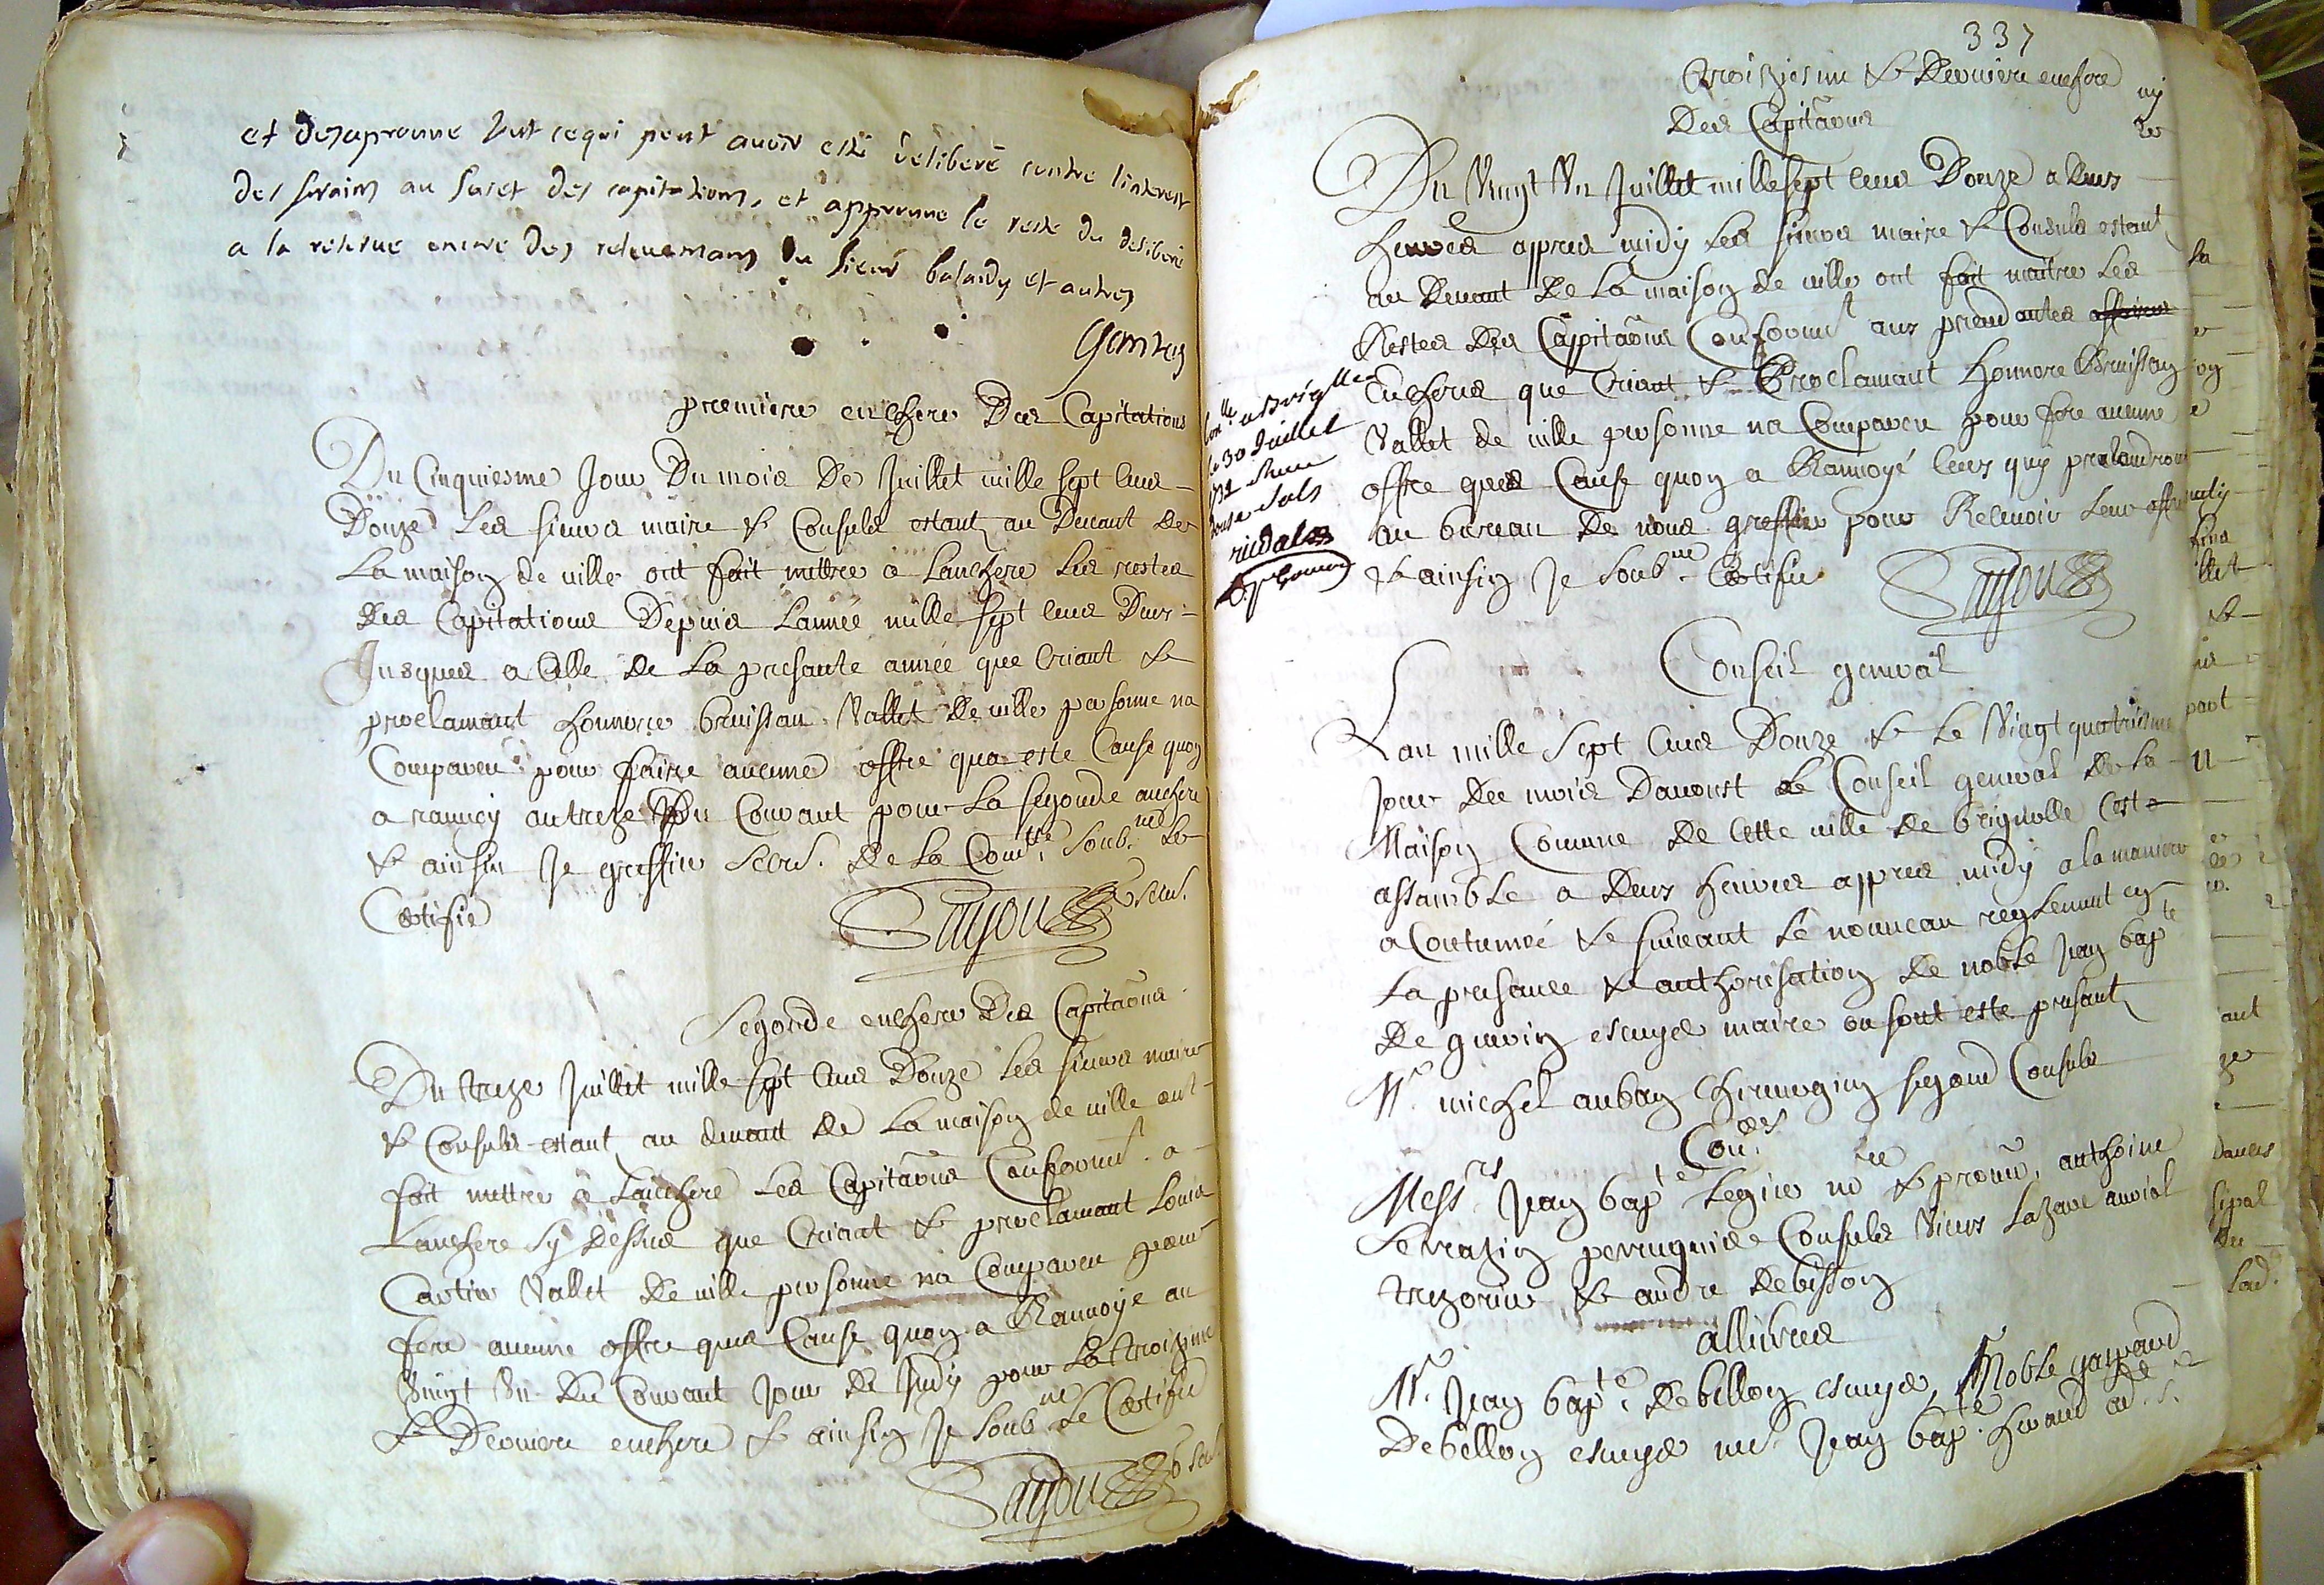 et desaprouve tout ce qui peut avoir esté deliberé contre linterest
des forains au sujet des capitations, et approuve le reste du deliberé
a la reserve encore des relevemans du sieur balardy et autres
premiere enchere Des Capitations
Du Cinquiesme Jour Du mois De Juillet mille sept Cens
Douze Les sieurs maire & Consuls estant au Devant de
La maison de ville ont fait mettre a Lanchere Les restes
Des Capitations Depuis Lannée mille sept Cens Deux
Jusques a Celle de La presante année que Criant &
proclamant honnore bruissan Vallet de ville personne na
Compareu pour faire aucune offre qua este Cause quoy
a ranvoy au treze Du Courant pour La segonde anchere
& ainsin Je greffier Secre. de La Comté. Soub.né Le
Certifié
Sayou Secre.
Segonde enchere Des Capitaôns
Du treze Juillet mille sept Cens Douze Les sieurs maire
& Consuls estant au devant de La maison de ville ont
fait mettre a Lanchere Les Capitaôns Conformt. a
Lanchere Sy Dessus que Criant & proclamant Louis
Cartier Vallet de ville personne na Compareu pour
fere aucune offre que Cause quoy a Ranvoye au
Vingt Un Du Courant Jour de Judy pour La troizime
& Derniere enchere & ainsin Je Soub.né Le Certifie
Sayou
337
Troizieme & Derniere enchere
Des Capitaôns
Du Vingt Un Juillet mille sept Cens Douze a Deux
heures appres midy Les sieurs maire & Consuls estant
au Devant De La maison de ville ont fait maitre Les
Restes Des Cappitaôns Conformt aux precedantes
Encheres que Criant & Proclamant Honnore Bruissan
Vallet de ville personne na Compareu pour fere aucune
offre que Cause quoy a Ranvoyé Ceux quy pretandront
au bureau De nous greffier pour Recevoir Leur offre
& ainsin Je Soub.né Certifie
Sayou
Con.lle a Briglles
le 30 Juillet
1712
douse sols
Conseil general
Lan mille Sept Cens Douze & Le Vingt quatriesme
Jour Du mois Daoust Le Conseil general de La
Maison Comune De Cette ville De brignolle Cest
assamble a Deux heures appres midy a la maniere
a Coutumée & suivant Le nouveau reglement en
La presance & authorisation De noble Jean bapte
De guerin escuyer maire ou sont este presant
Mr. michel auban Chirurgien segond Consuls
Con.ers
Messrs Jean bapte Legier ne & proeur. anthoine
Serrazin perruquier Consuls Vieux Lazare auriol
trezorier & andre Debisson
allivres
Mr. Jean bapte. de bellon escuyer, Noble gaspard
De bellon escuyer mr. Jean bapte. heraud